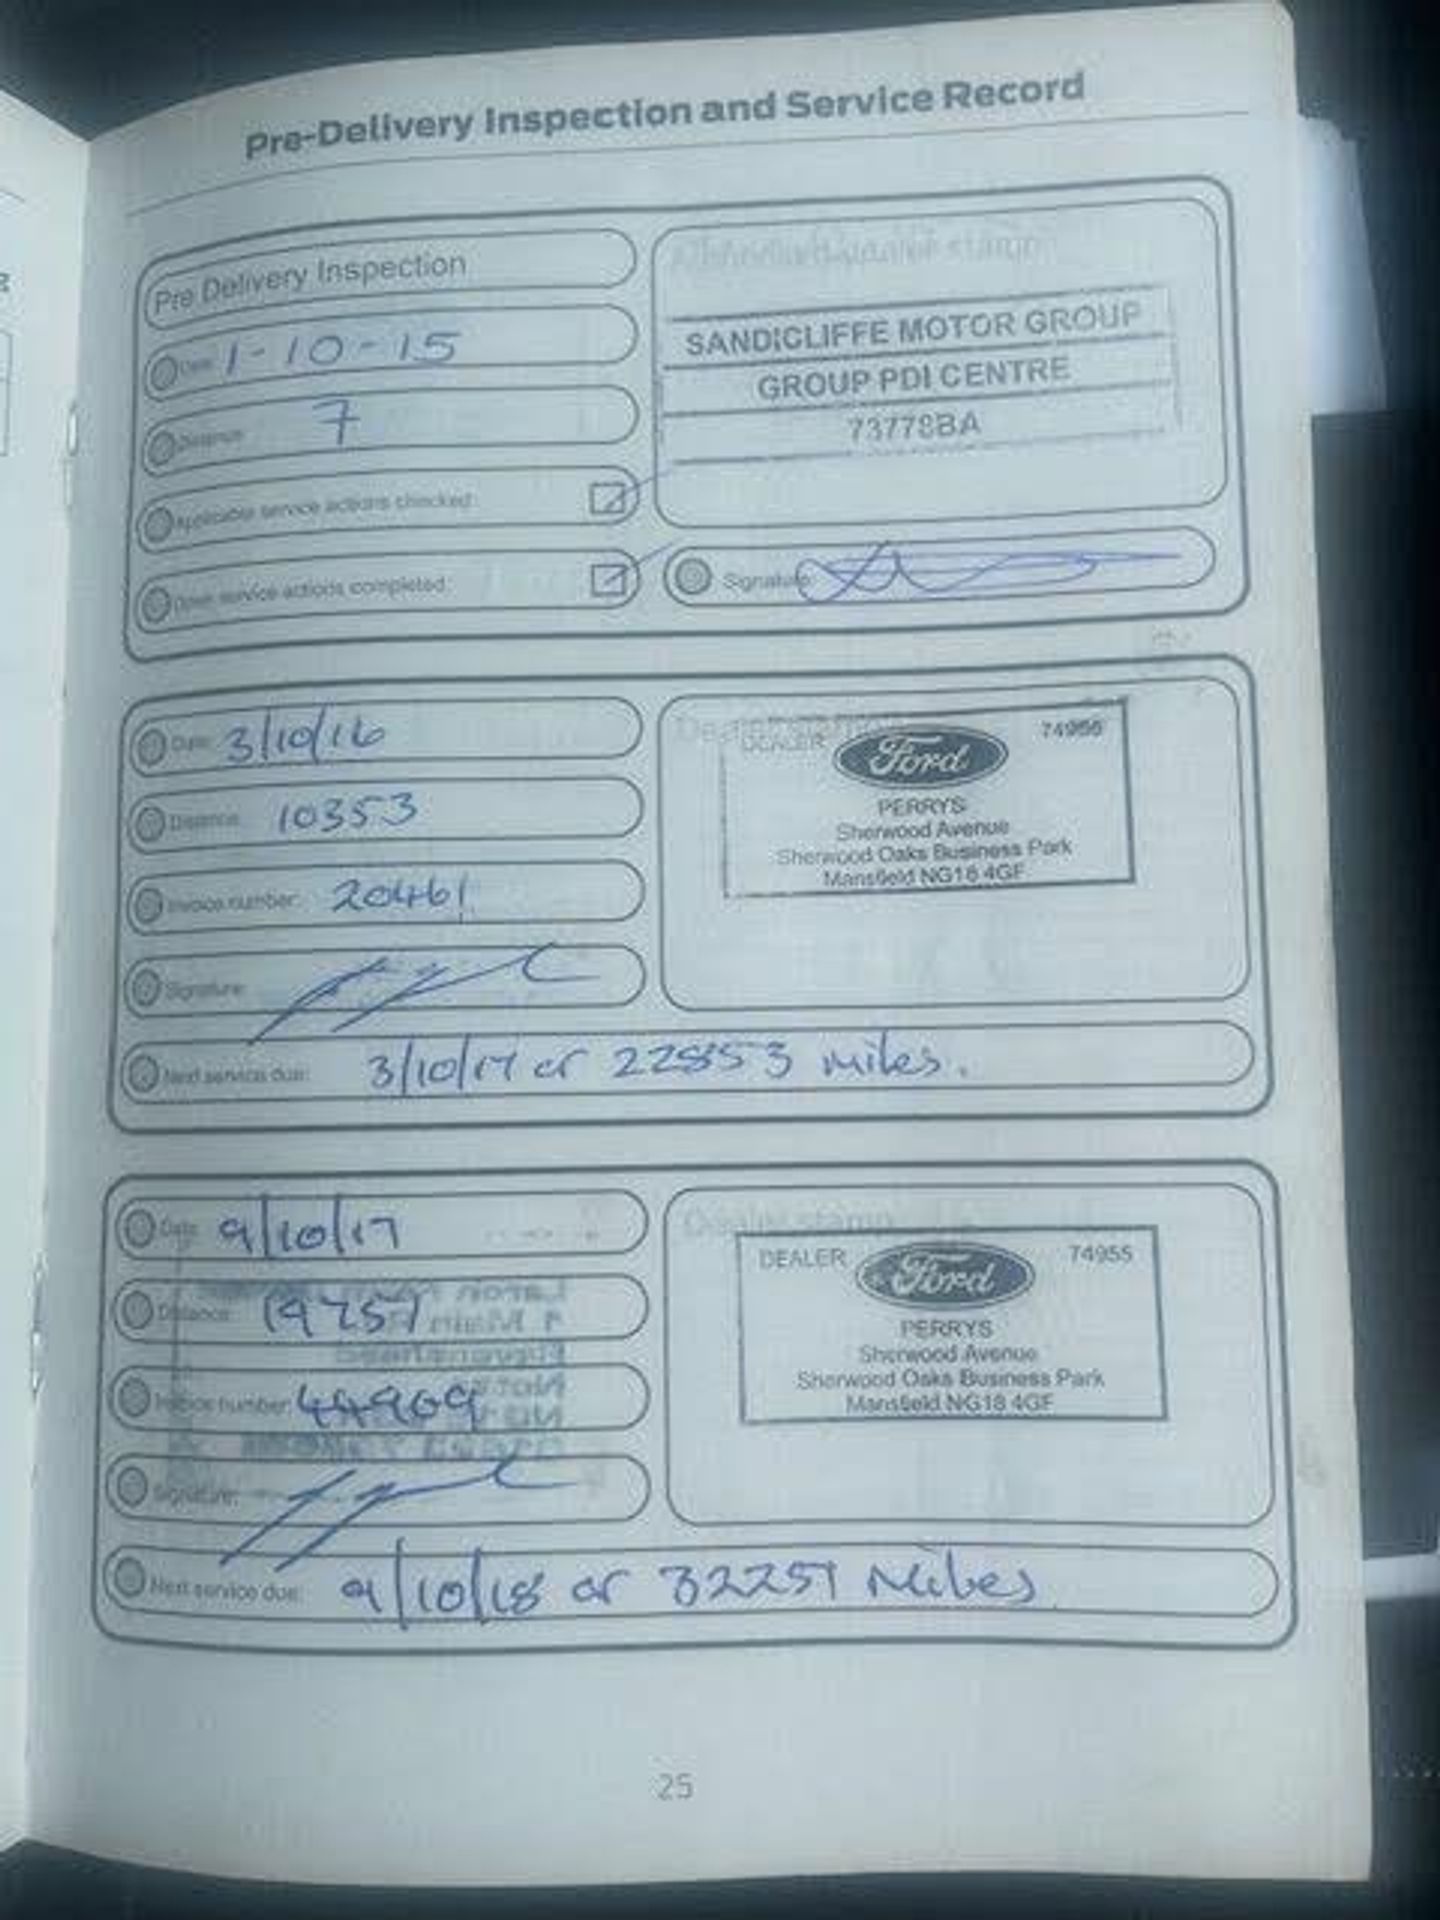 Pre-Delivery Inspection and Service Record
Pre Delivery Inspection
Date: 1-10-15
Distance: 7
Applicable service actions checked:
Open service actions completed:
SANDICLIFFE MOTOR GROUP
GROUP PDI CENTRE
73778BA
Signature:
Date: 3/10/16
Distance: 10353
Invoice number: 20461
Signature:
Next service due: 3/10/17 or 22853 miles.
Dealer stamp
DEALER Ford
PERRYS
Sherwood Avenue
Sherwood Oaks Business Park
Mansfield NG18 4GF
Date: 9/10/17
Distance: 19757
Invoice number: 44909
Signature:
Next service due: 9/10/18 or 32257 Miles
Dealer stamp
DEALER Ford 74955
PERRYS
Sherwood Avenue
Sherwood Oaks Business Park
Mansfield NG18 4GF
25